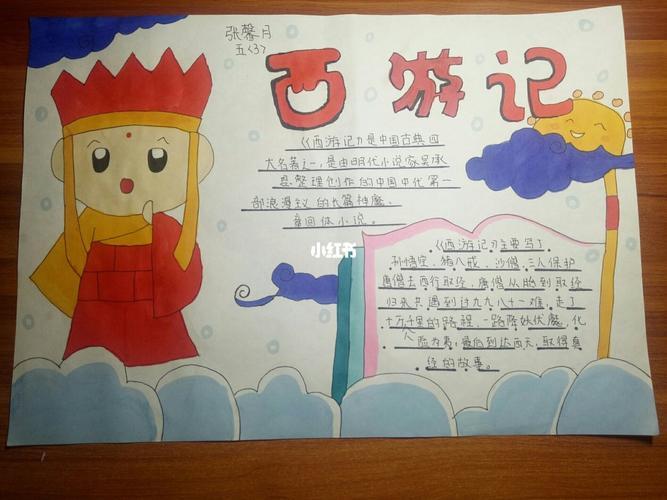 张馨月
五<3>
西游记
《西游记》是中国古典四
大名著之一,是由明代小说家吴承
恩整理创作的中国中代第一
部浪漫主义的长篇神魔
章回体小说。
小红书
《西游记》主要写了
孙悟空,猪八戒,沙僧,三人保护
唐僧去西行取经,唐僧从胎到取经
归来共遇到过九九八十一难,走了
十万千里的路程,一路降妖伏魔,化
险为夷,最后到达西天,取得真
经的故事。